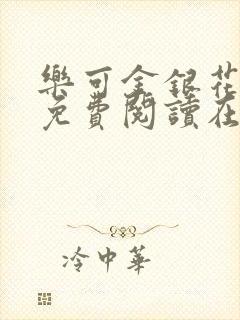 樂可金銀花
免費閱讀在
冷中華